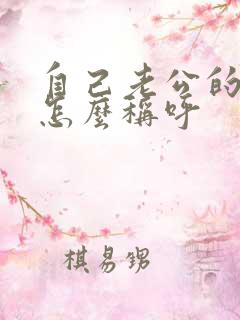 自己老公的
怎麼稱呼
棋易甥